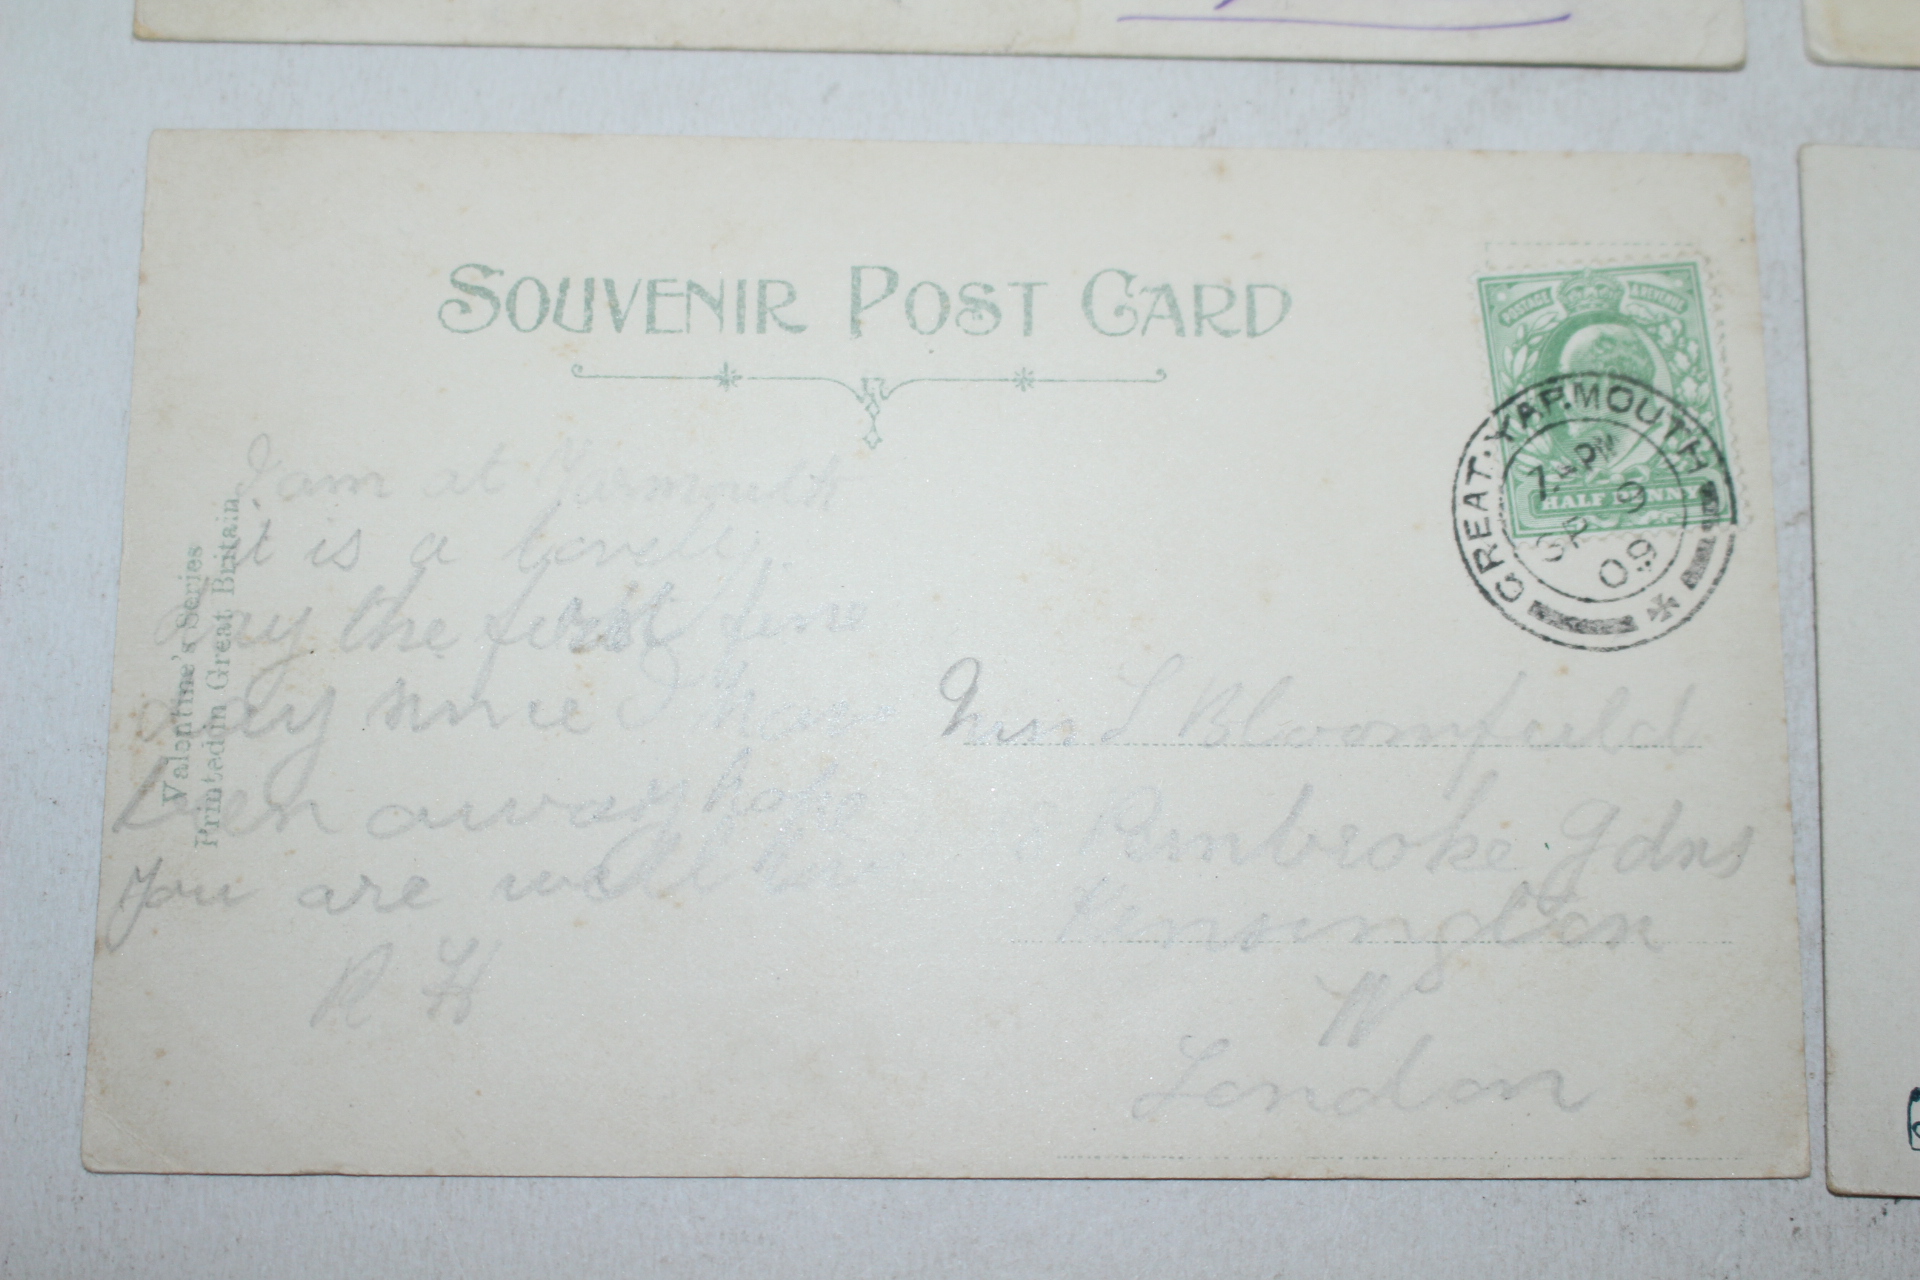 SOUVENIR POST CARD
POSTAGE REVENUE
HALF PENNY
GREAT. YARMOUTH
7. PM
SP 9
09
Valentine's Series
Printed in Great Britain
I am at Yarmouth
it is a lovely
day the first fine
day since I have
been away hope
you are well
R H
Miss L Bloomfield
Pembroke Gdns
Kensington
W
London